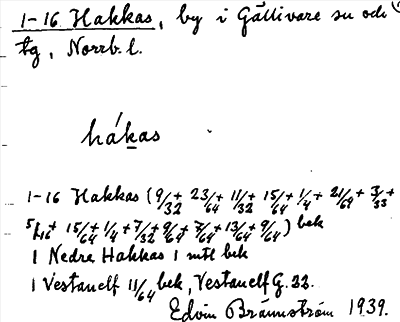 1-16 Hakkas, by i Gällivare sn och
tg, Norrb. l.
hákas
1-16 Hakkas (9/32 + 23/64 + 11/32 + 15/64 + 1/4 + 21/64 + 3/32 +
5/16 + 15/64 + 1/4 + 7/32 + 9/64 + 7/64 + 13/64 + 9/64) bek
1 Nedre Hakkas 1 mtl bek
1 Vestanelf 11/64 bek, Vestanelf G. 32.
Edvin Brännström 1939.